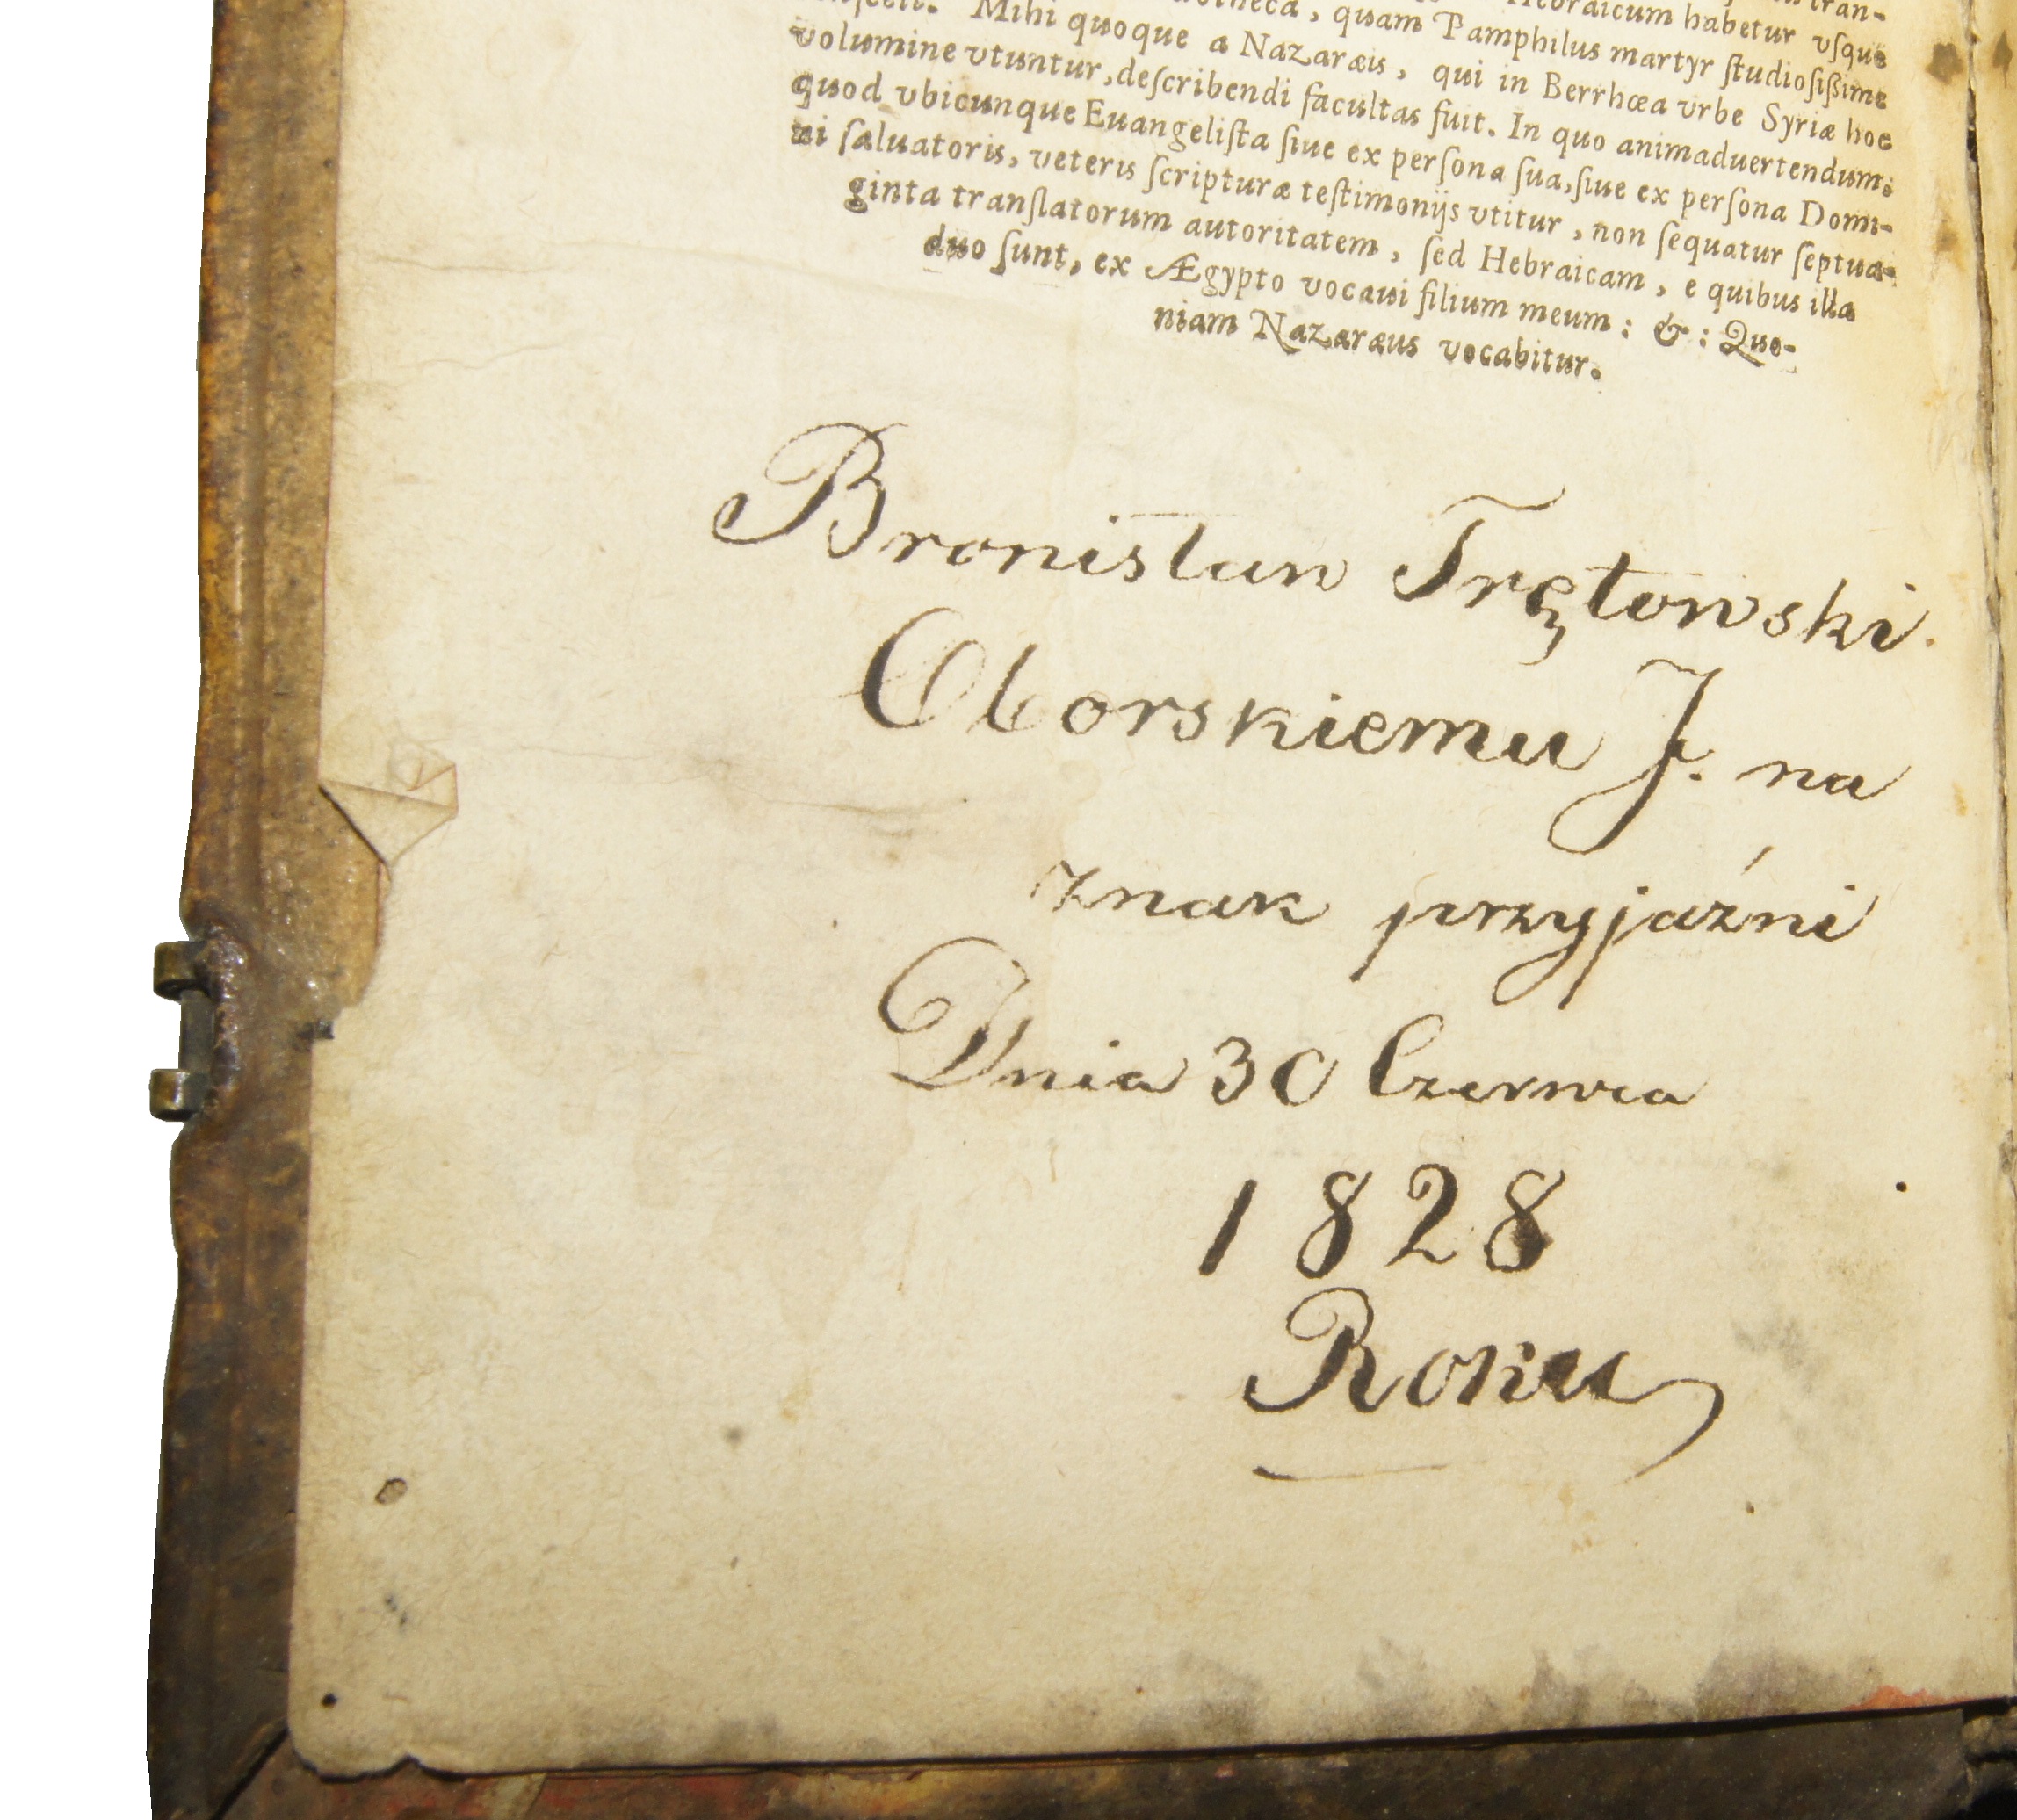 Mihi quoque a Nazaræis, qui in Berrhœa vrbe Syriæ hoc
volumine vtuntur, deſcribendi facultas fuit. In quo animaduertendum,
quod vbicunque Euangeliſta ſiue ex perſona ſua, ſiue ex perſona Domi-
ni ſaluatoris, veteris ſcripturæ teſtimonijs vtitur, non ſequatur ſeptua-
ginta tranſlatorum autoritatem, ſed Hebraicam, e quibus illa
duo ſunt, ex Ægypto vocaui filium meum: &: Quo-
niam Nazaræus vocabitur.
Bronisław Trętowski
Oborskiemu J. na
znak przyjaźni
Dnia 30 Czerwca
1828
Roku